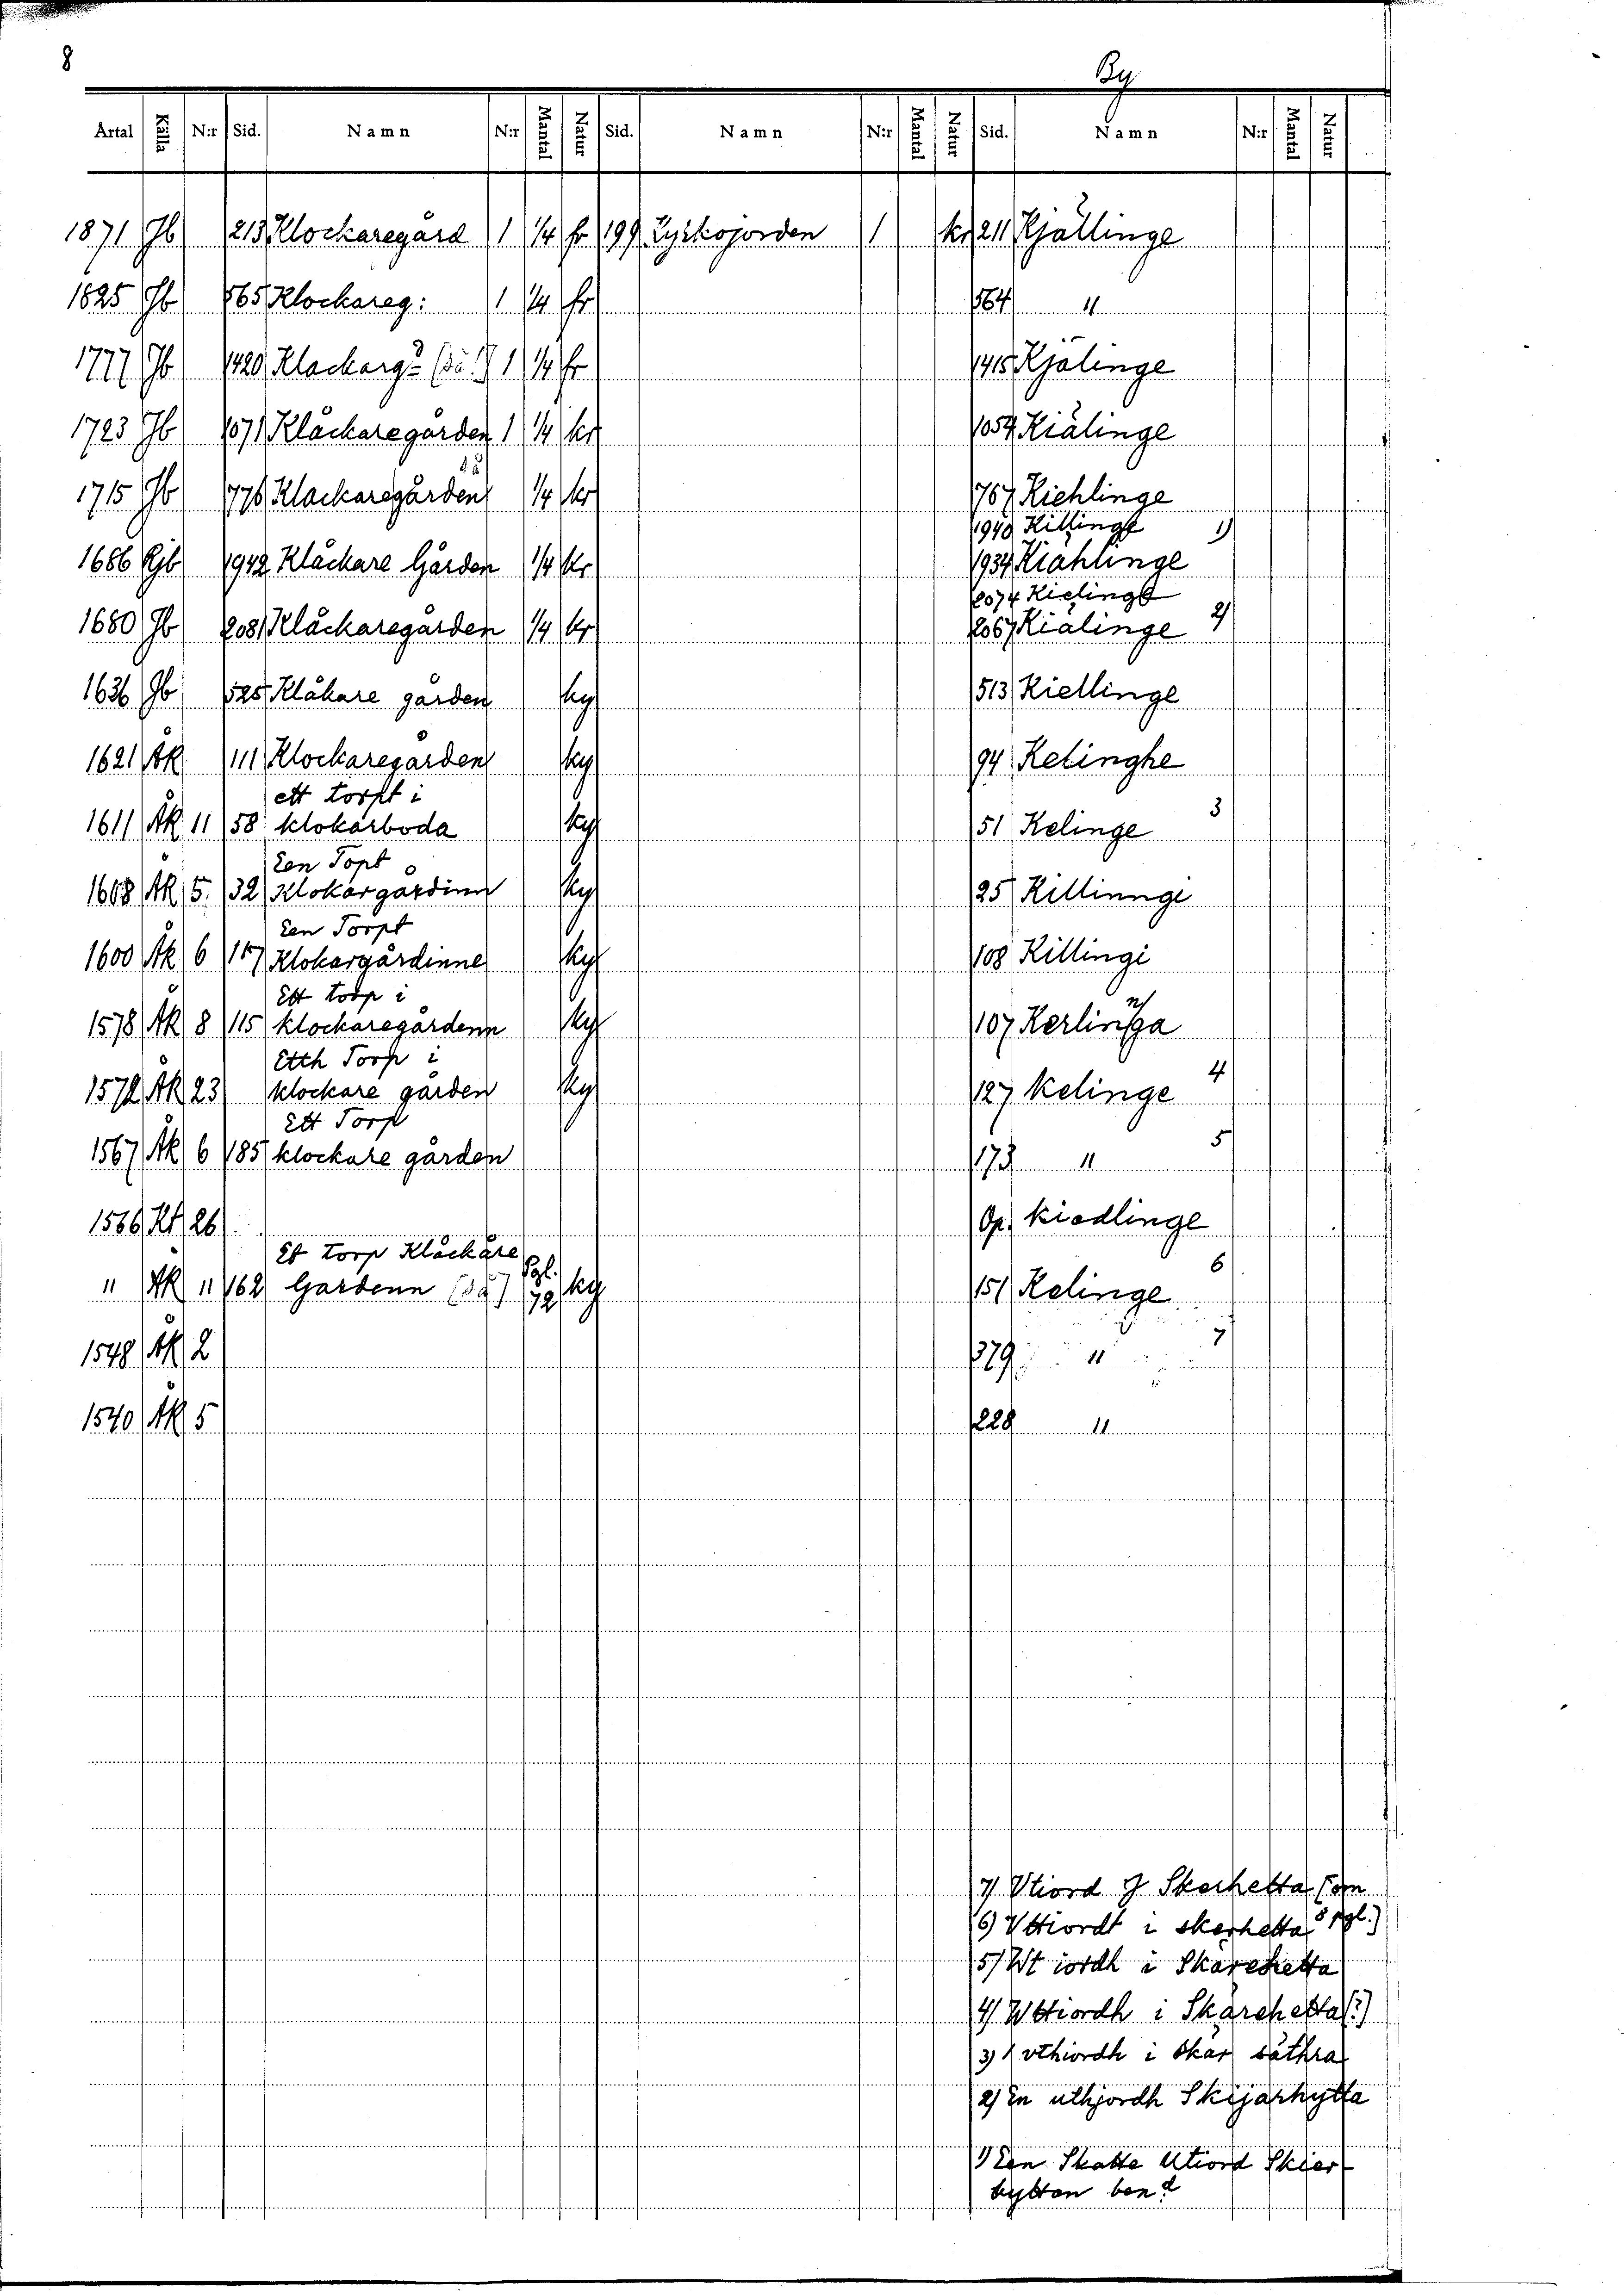 8
By
Årtal Källa N:r Sid. Namn N:r Mantal Natur Sid. Namn N:r Mantal Natur Sid. Namn N:r Mantal Natur
1871 Jb 213 Klockaregård 1 1/4 fr 199 Kyrkojorden 1 kr 211 Kjällinge
1825 Jb 565 Klockareg: 1 1/4 fr 564 "
1777 Jb 1420 Klackargd (så!) 1 1/4 fr 1415 Kjälinge
1723 Jb 1071 Klåckaregården 1 1/4 kr 1054 Kiälinge
så
1715 Jb 776 Klackaregården 1/4 kr 767 Kiehlinge
1940 Killinge 1)
1686 Rjb 1942 Klåckare Gården 1/4 kr 1934 Kiählinge
2074 Kielinge
1680 Jb 2081 Klåckaregården 1/4 kr 2067 Kiälinge 2)
1636 Jb 525 Klåkare gården ky 513 Kiellinge
1621 ÅK 111 Klockaregården ky 94 Kelinghe
ett torpt i
1611 ÅK 11 58 klokarboda ky 51 Kelinge 3
Een Topt
1608 ÅK 5 32 Klokargårdinn ky 25 Killinngi
Een Torpt
1600 ÅK 6 117 Klokargårdinne ky 108 Killingi
Ett torp i
1578 ÅK 8 115 klockaregårdenn ky 107 Kerlinga n/
Etth Torp i
1572 ÅK 23 klockare gården ky 127 Kelinge 4
Ett Torp
1567 ÅK 6 185 klockare gården 173 " 5
1566 Kt 26 Op. Kiedlinge
Et torp Klåckare
" ÅK 11 162 Gardenn (så) Pgl. 72 ky 151 Kelinge 6
1548 ÅK 2 379 " 7
1540 ÅK 5 228 "
7) Vtiord J Skerhetta [om
6) Vttiordt i skerhetta 8 pgl.]
5) Wt iordh i Skärehetta
4) Wttiordh i Skärehetta [?]
3) 1 vthiordh i skär säthra
2) En uthjordh Skijarhytta
1) Een Skatte Utiord Skier-
hyttan bend